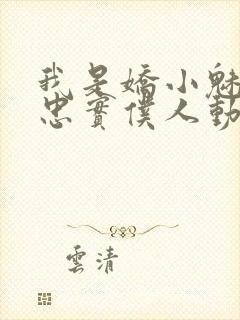 我是嬌小魅
忠實僕人動
雲清